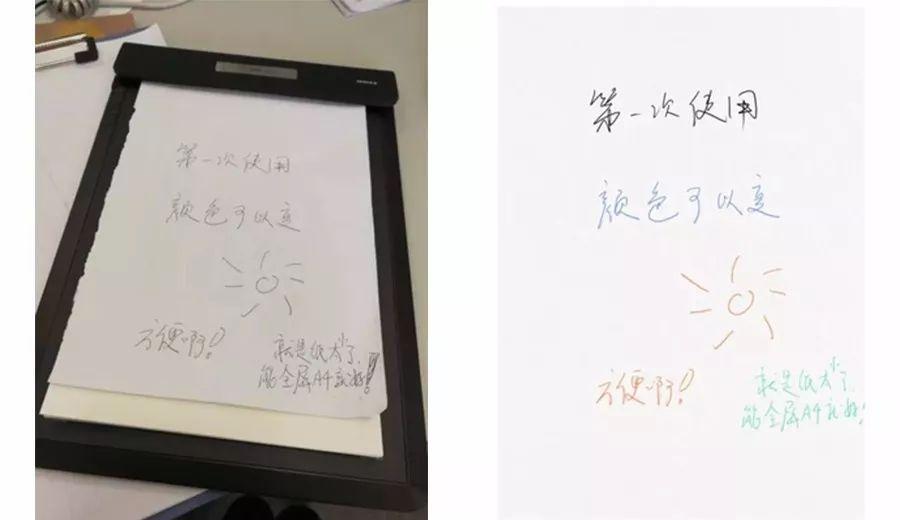 第一次使用
颜色可以变
方便啊!
就是纸太小了,
能全屏A4就好!
第一次使用
颜色可以变
方便啊!
就是纸太小了,
能全屏A4就好!